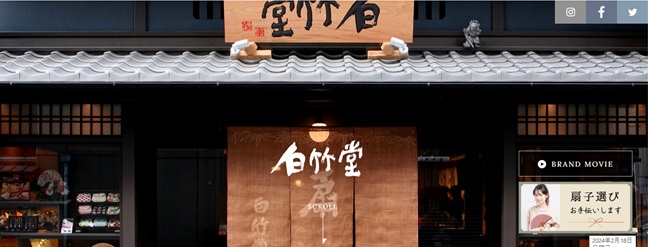 堂竹白
白竹堂
扇
白竹
SCROLL
BRAND MOVIE
扇子選び
お手伝いします
2024年2月18日